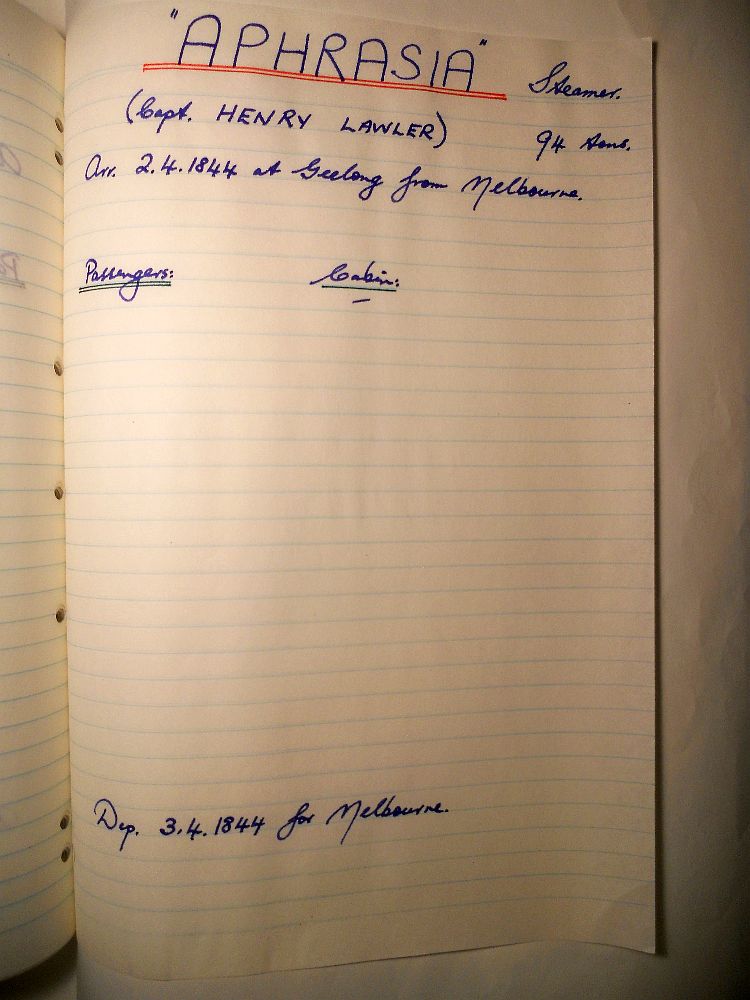 "APHRASIA" Steamer.
(Capt. HENRY LAWLER) 94 tons.
Arr. 2.4.1844 at Geelong from Melbourne.
Passengers: Cabin:
—
Dep. 3.4.1844 for Melbourne.